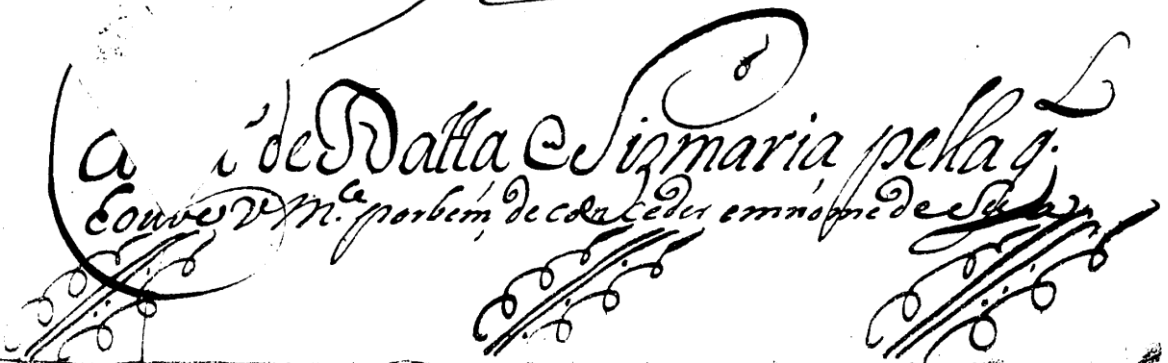 de Datta e Sizmaria pella q.^l
Houve V M.^ce por bem, de conceder em nóme de Sua